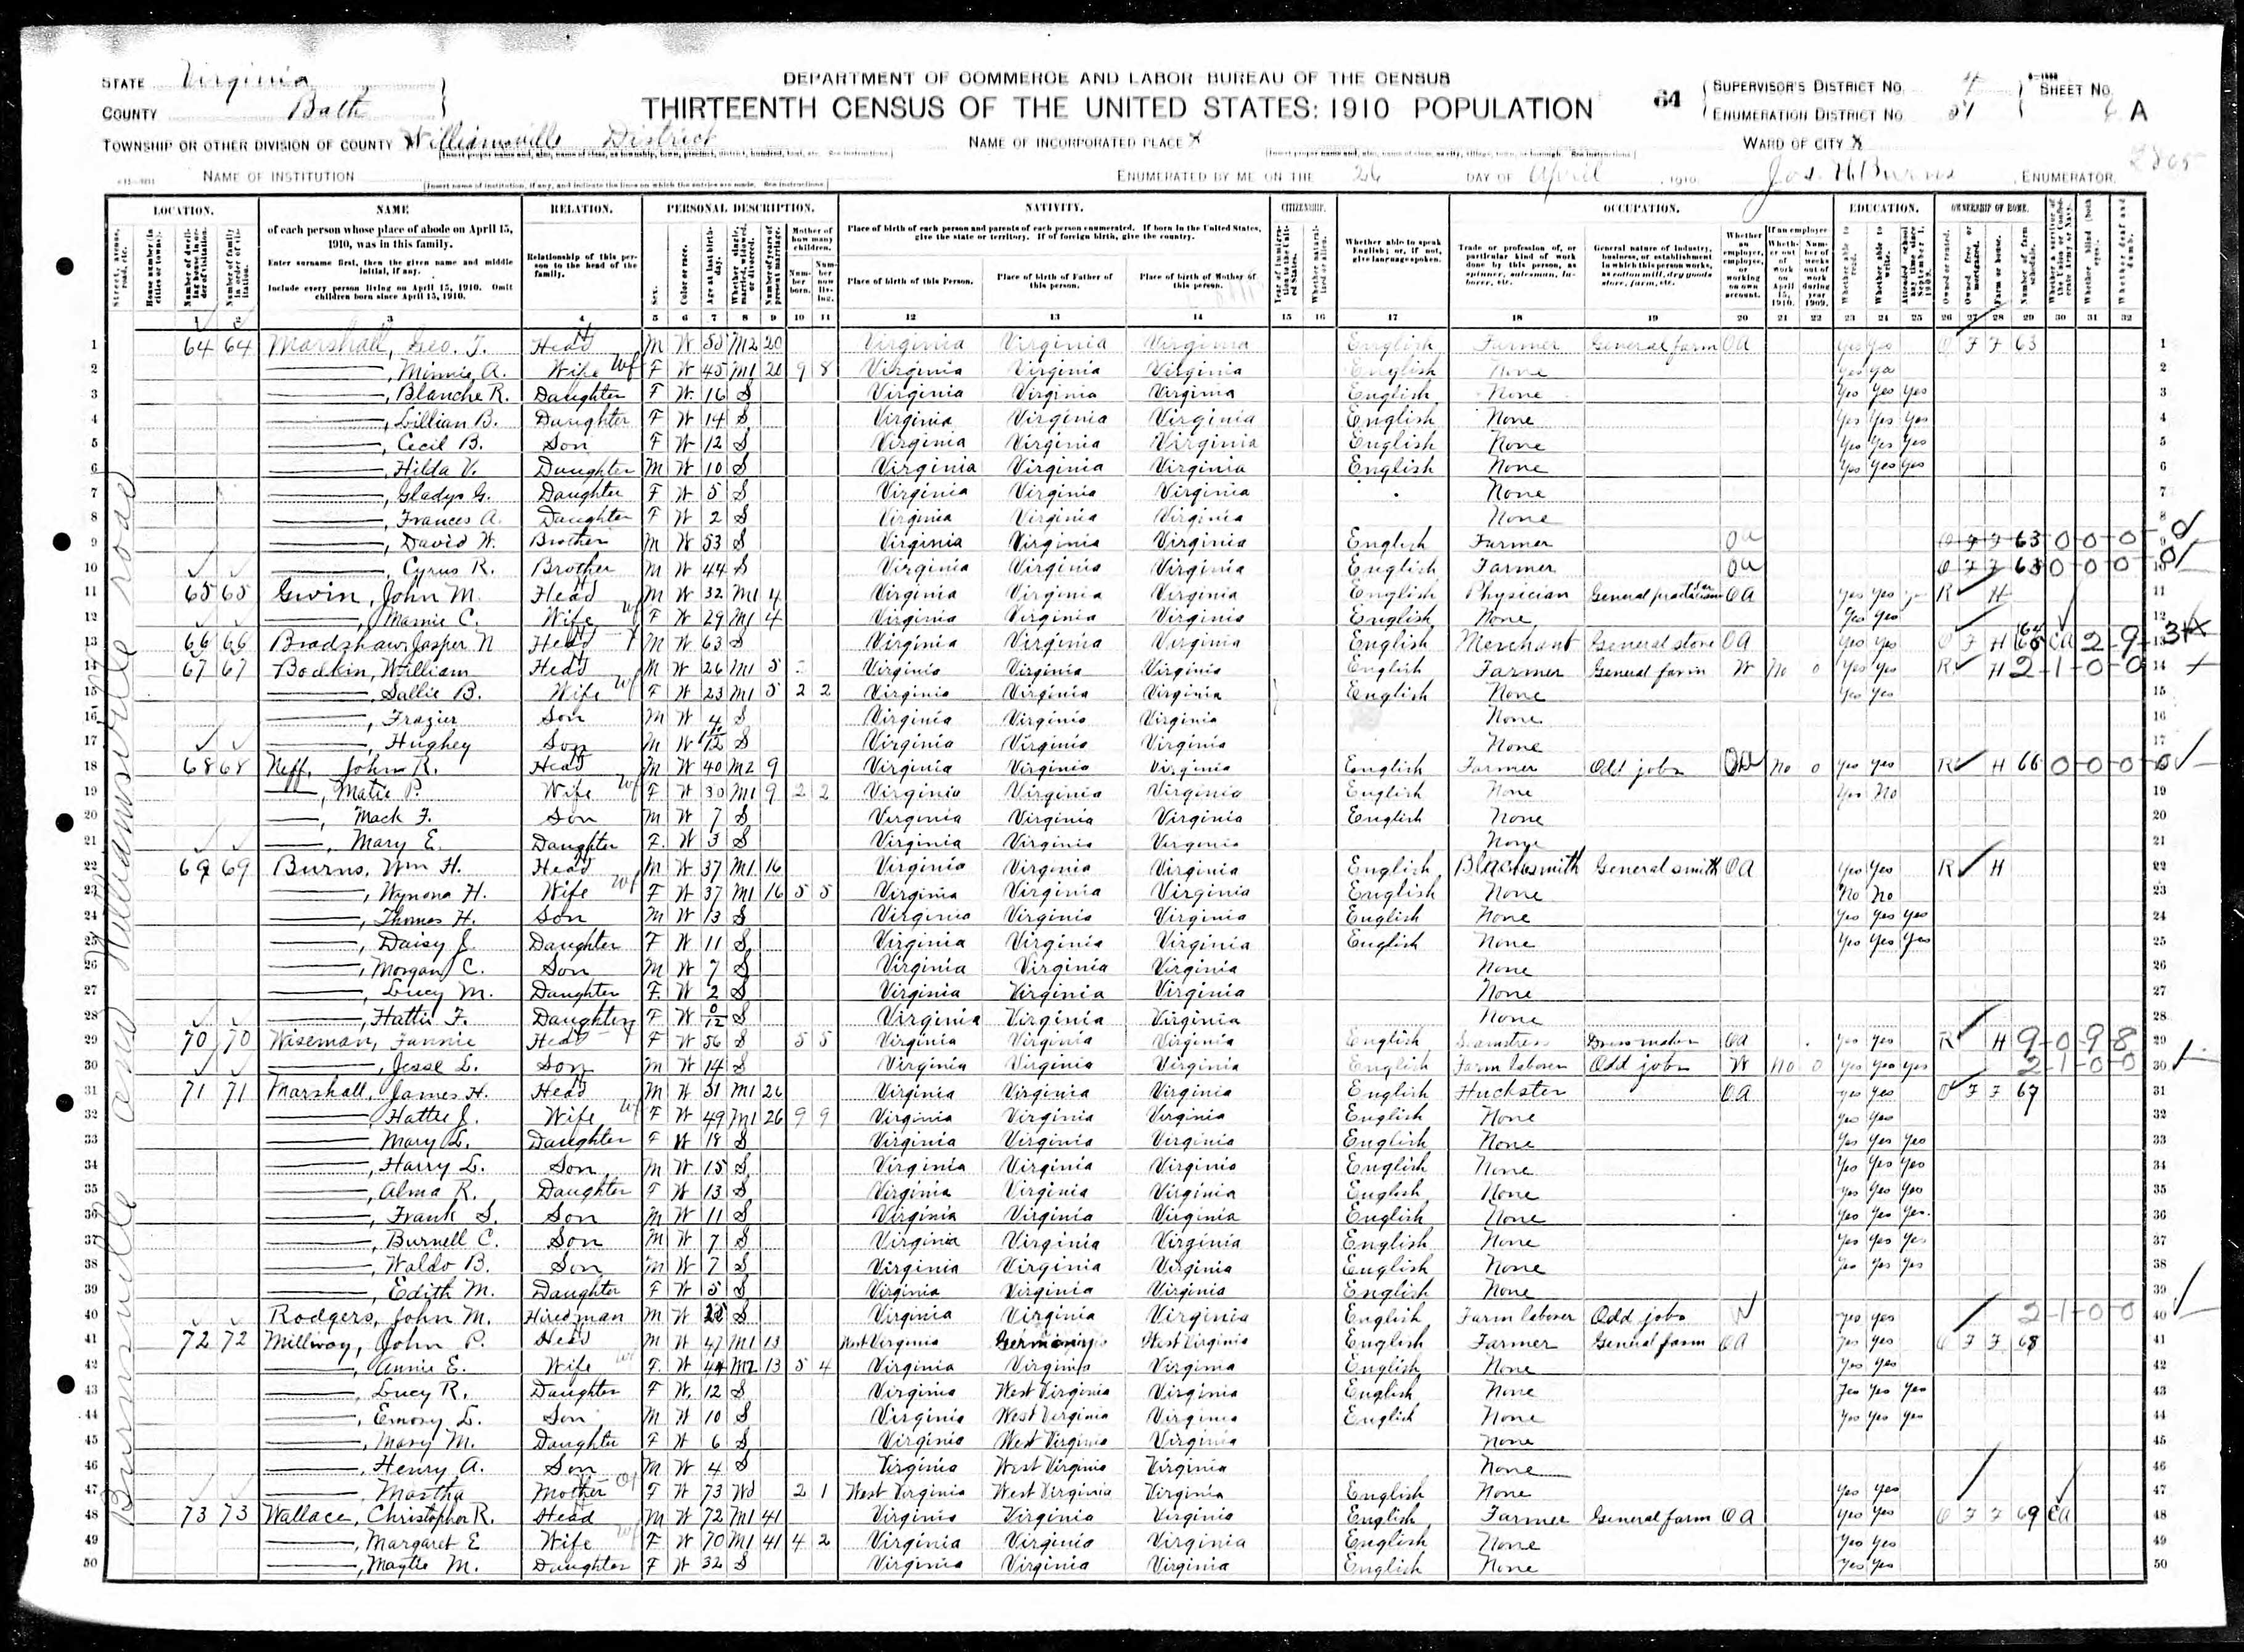 STATE Virginia
COUNTY Bath
TOWNSHIP OR OTHER DIVISION OF COUNTY Williamsville District
DEPARTMENT OF COMMERCE AND LABOR BUREAU OF THE CENSUS
THIRTEENTH CENSUS OF THE UNITED STATES: 1910 POPULATION
NAME OF INCORPORATED PLACE X
64
SUPERVISOR'S DISTRICT NO. 4
ENUMERATION DISTRICT NO. 21
SHEET NO. 6 A
WARD OF CITY X
NAME OF INSTITUTION
ENUMERATED BY ME ON THE 26 DAY OF April, 1910. Jos. H. Burns, ENUMERATOR.
LOCATION. NAME RELATION. PERSONAL DESCRIPTION. NATIVITY. CITIZENSHIP. OCCUPATION. EDUCATION. OWNERSHIP OF HOME.
of each person whose place of abode on April 15, 1910, was in this family.
Enter surname first, then the given name and middle initial, if any.
Include every person living on April 15, 1910. Omit children born since April 15, 1910.
Relationship of this person to the head of the family.
Place of birth of each person and parents of each person enumerated. If born in the United States, give the state or territory. If of foreign birth, give the country.
Place of birth of this Person. Place of birth of Father of this person. Place of birth of Mother of this person.
Whether able to speak English; or, if not, give language spoken.
1 2 3 4 5 6 7 8 9 10 11 12 13 14 15 16 17 18 19 20 21 22 23 24 25 26 27 28 29 30 31 32
Burnsville and Williamsville road
1 64 64 Marshall, Geo. T. Head M W 55 M2 20 Virginia Virginia Virginia English Farmer General farm OA Yes Yes O F F 63 1
2 ———, Minnie A. Wife F W 45 M1 20 9 8 Virginia Virginia Virginia English None Yes Yes 2
3 ———, Blanche R. Daughter F W 16 S Virginia Virginia Virginia English None Yes Yes Yes 3
4 ———, Lillian B. Daughter F W 14 S Virginia Virginia Virginia English None Yes Yes Yes 4
5 ———, Cecil B. Son F W 12 S Virginia Virginia Virginia English None Yes Yes Yes 5
6 ———, Hilda V. Daughter M W 10 S Virginia Virginia Virginia English None Yes Yes Yes 6
7 ———, Gladys G. Daughter F W 5 S Virginia Virginia Virginia None 7
8 ———, Frances A. Daughter F W 2 S Virginia Virginia Virginia None 8
9 ———, David W. Brother M W 53 S Virginia Virginia Virginia English Farmer OA O F F 63 0-0-0 9
10 ———, Cyrus R. Brother M W 44 S Virginia Virginia Virginia English Farmer OA O F F 63 0-0-0 10
11 65 65 Gwin, John M. Head M W 32 M1 4 Virginia Virginia Virginia English Physician General practice OA Yes Yes R H 11
12 ———, Mamie C. Wife F W 29 M1 4 Virginia Virginia Virginia English None Yes Yes 12
13 66 66 Bradshaw, Jasper N Head M W 63 S Virginia Virginia Virginia English Merchant General store OA Yes Yes O F H CA 2-9-3 13
14 67 67 Bodkin, William Head M W 26 M1 5 Virginia Virginia Virginia English Farmer General farm W No 0 Yes Yes R H 2-1-0-0 14
15 ———, Sallie B. Wife F W 23 M1 5 2 2 Virginia Virginia Virginia English None Yes Yes 15
16 ———, Frazier Son M W 4 S Virginia Virginia Virginia None 16
17 ———, Hughey Son M W S Virginia Virginia Virginia None 17
18 68 68 Neff, John R. Head M W 40 M2 9 Virginia Virginia Virginia English Farmer Odd jobs No 0 Yes Yes R H 66 0-0-0 18
19 ———, Matie P. Wife F W 30 M1 9 2 2 Virginia Virginia Virginia English None Yes No 19
20 ———, Mack F. Son M W 7 S Virginia Virginia Virginia English None 20
21 ———, Mary E. Daughter F W 3 S Virginia Virginia Virginia None 21
22 69 69 Burns, Wm H. Head M W 37 M1 16 Virginia Virginia Virginia English Blacksmith General smith OA Yes Yes R H 22
23 ———, Wynona H. Wife F W 37 M1 16 5 5 Virginia Virginia Virginia English None No No 23
24 ———, Thomas H. Son M W 13 S Virginia Virginia Virginia English None Yes Yes Yes 24
25 ———, Daisy J. Daughter F W 11 S Virginia Virginia Virginia English None Yes Yes Yes 25
26 ———, Morgan C. Son M W 7 S Virginia Virginia Virginia None 26
27 ———, Lucy M. Daughter F W 2 S Virginia Virginia Virginia None 27
28 ———, Hattie F. Daughter F W 0/12 S Virginia Virginia Virginia None 28
29 70 70 Wiseman, Fannie Head F W 56 S 5 5 Virginia Virginia Virginia English Seamstress Dressmaker OA Yes Yes R H 9-0-9-8 29
30 ———, Jesse L. Son M W 14 S Virginia Virginia Virginia English Farm laborer Odd jobs W No 0 Yes Yes Yes 2-1-0-0 30
31 71 71 Marshall, James H. Head M W 51 M1 26 Virginia Virginia Virginia English Huckster OA Yes Yes O F F 67 31
32 ——— Hattie J. Wife F W 49 M1 26 9 9 Virginia Virginia Virginia English None Yes Yes 32
33 ——— Mary E. Daughter F W 18 S Virginia Virginia Virginia English None Yes Yes Yes 33
34 ———, Harry L. Son M W 15 S Virginia Virginia Virginia English None Yes Yes Yes 34
35 ———, Alma R. Daughter F W 13 S Virginia Virginia Virginia English None Yes Yes Yes 35
36 ———, Frank S. Son M W 11 S Virginia Virginia Virginia English None Yes Yes Yes 36
37 ———, Burnell C. Son M W 7 S Virginia Virginia Virginia English None Yes Yes Yes 37
38 ———, Waldo B. Son M W 7 S Virginia Virginia Virginia English None Yes Yes Yes 38
39 ———, Edith M. Daughter F W 5 S Virginia Virginia Virginia English None 39
40 Rodgers, John M. Hired man M W S Virginia Virginia Virginia English Farm laborer Odd jobs W Yes Yes 2-1-0-0 40
41 72 72 Milliway, John P. Head M W 47 M1 13 West Virginia Germany West Virginia English Farmer General farm OA Yes Yes O F F 68 41
42 ———, Annie E. Wife F W 44 M2 13 5 4 Virginia Virginia Virginia English None Yes Yes 42
43 ———, Lucy R. Daughter F W 12 S Virginia West Virginia Virginia English None Yes Yes Yes 43
44 ———, Emory L. Son M W 10 S Virginia West Virginia Virginia English None Yes Yes Yes 44
45 ———, Mary M. Daughter F W 6 S Virginia West Virginia Virginia None 45
46 ———, Henry A. Son M W 4 S Virginia West Virginia Virginia None 46
47 ———, Martha Mother F W 73 Wd 2 1 West Virginia West Virginia Virginia English None Yes Yes 47
48 73 73 Wallace, Christopher R. Head M W 72 M1 41 Virginia Virginia Virginia English Farmer General farm OA Yes Yes O F F 69 CA 48
49 ———, Margaret E Wife F W 70 M1 41 4 2 Virginia Virginia Virginia English None Yes Yes 49
50 ———, Maytle M. Daughter F W 32 S Virginia Virginia Virginia English None Yes Yes 50